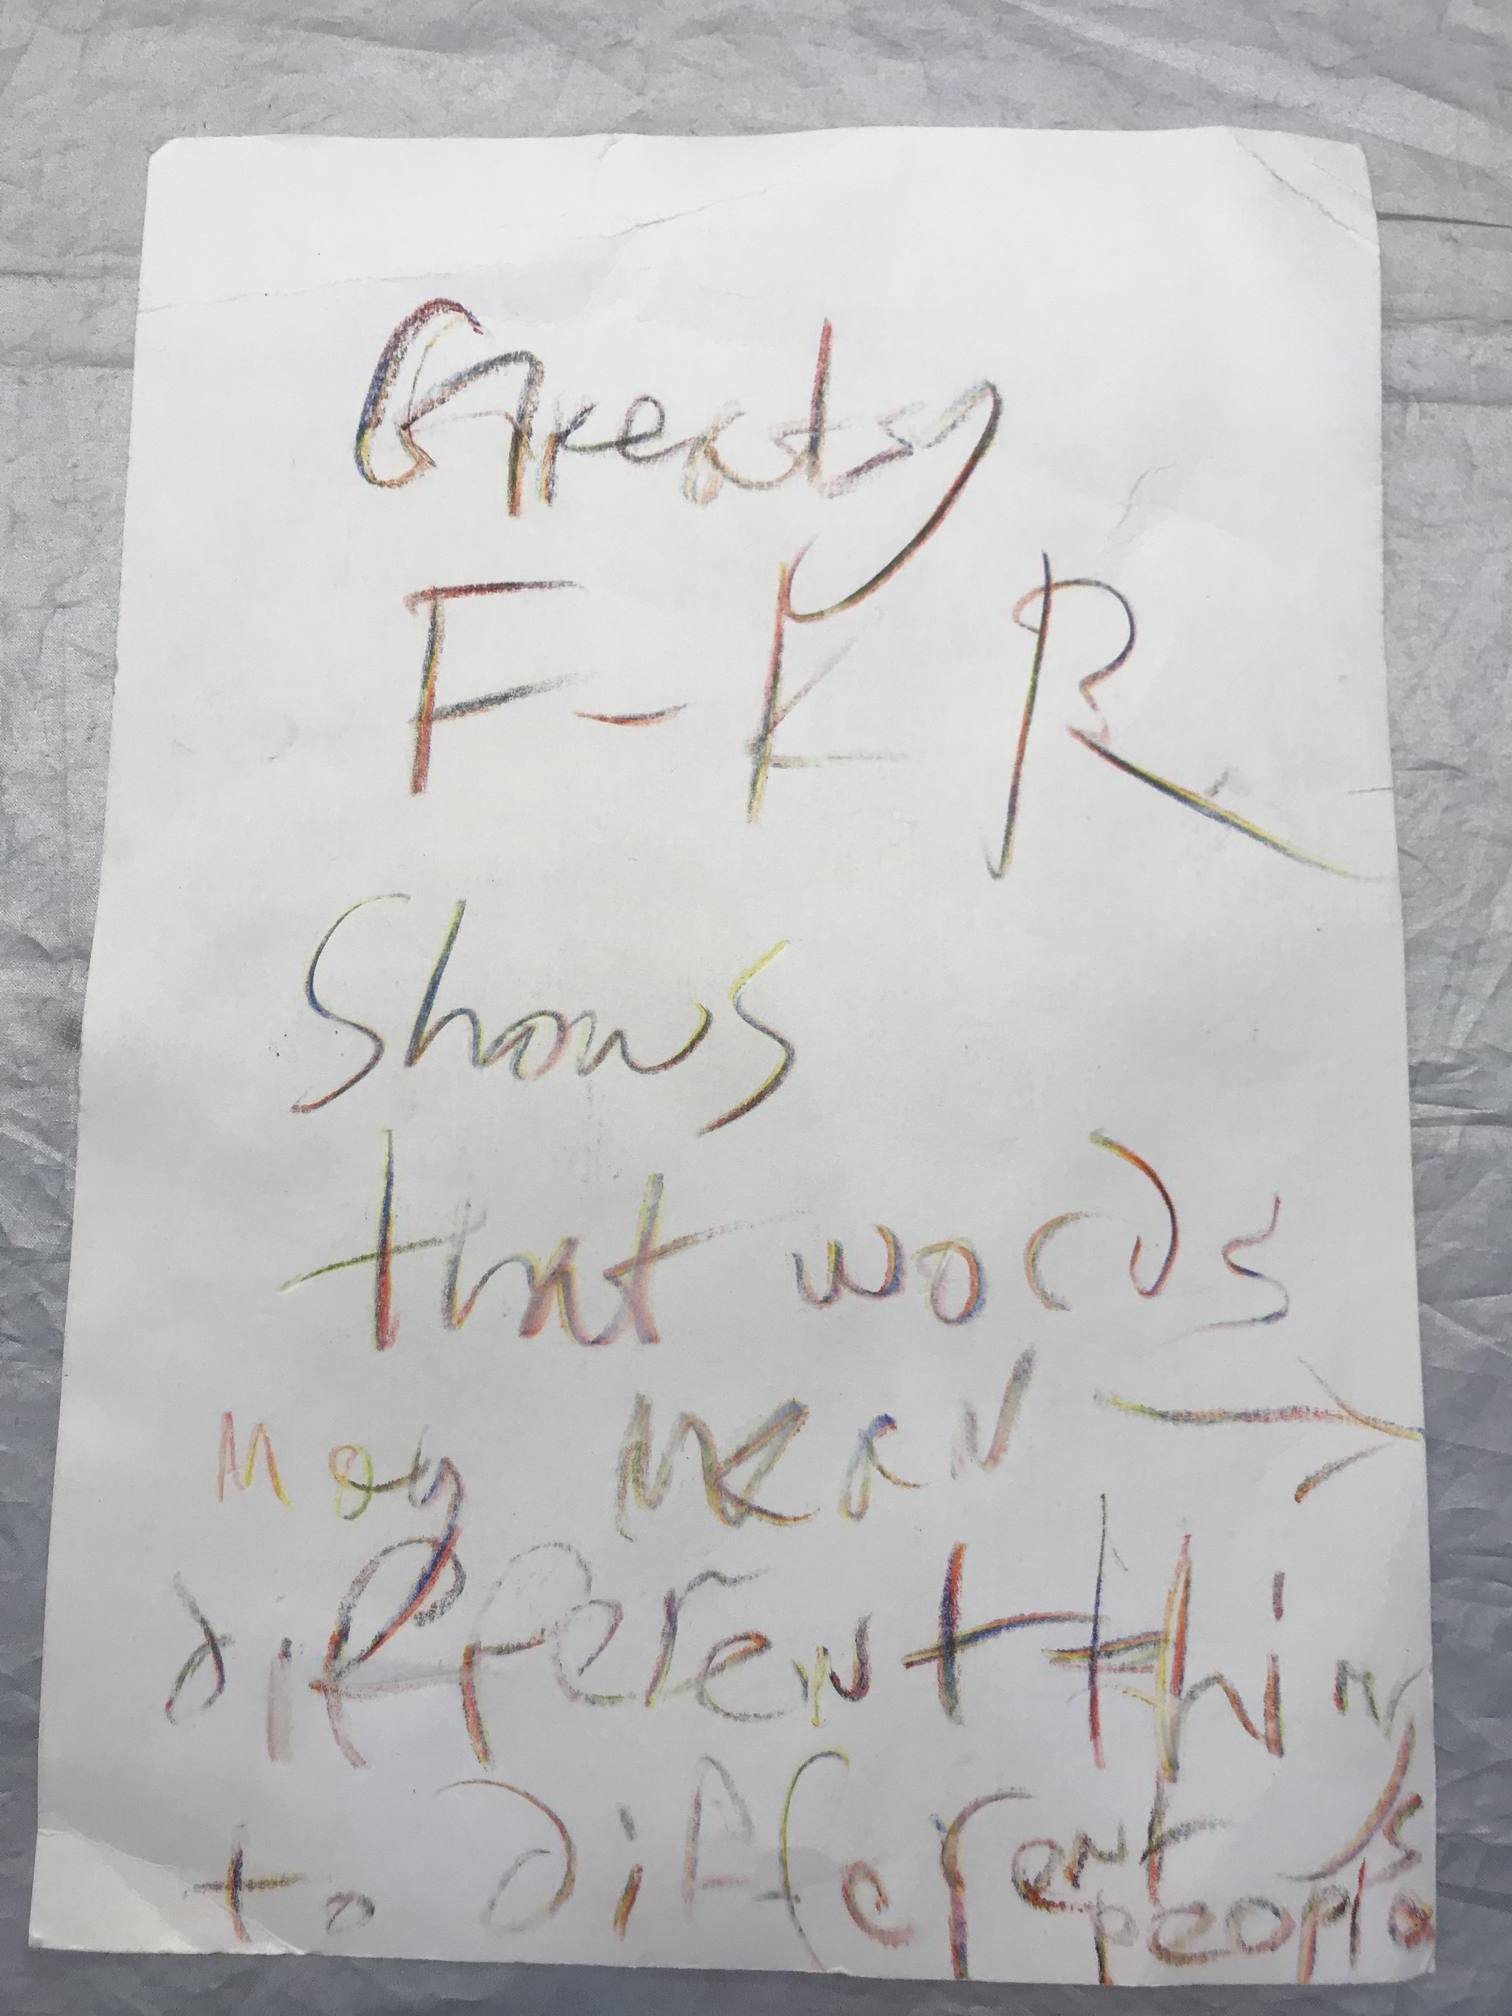 F-ER
Shows
that words
may MEAN →
different things
to different people